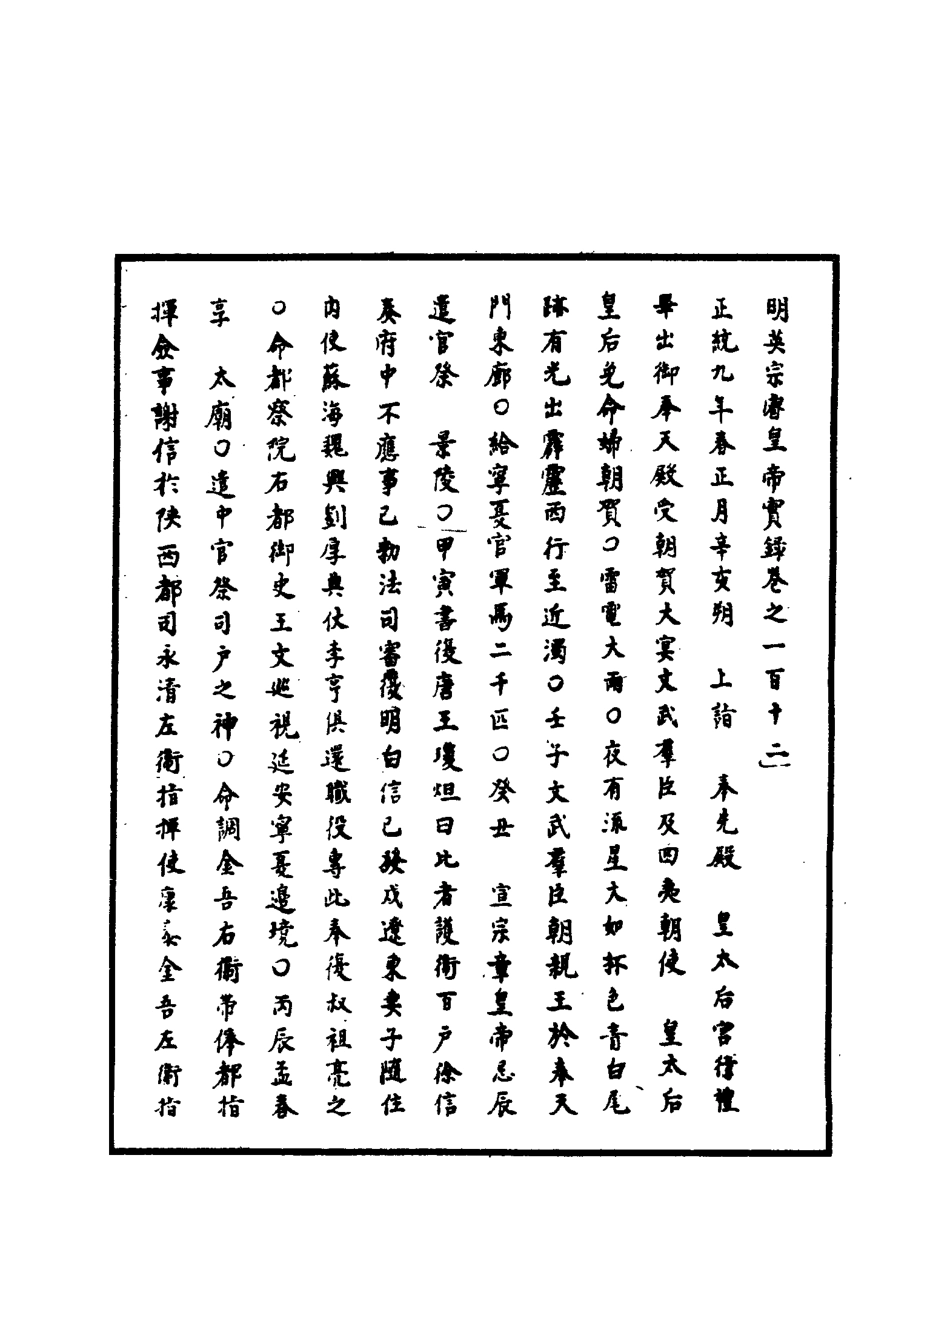 明英宗睿皇帝實錄卷之一百十二
正統九年春正月辛亥朔　上詣　奉先殿　皇太后宮行禮
畢出御奉天殿受朝賀大宴文武羣臣及四夷朝使　皇太后
皇后免命婦朝賀○雷電大雨○夜有流星大如杯色青白尾
跡有光出霹靂西行至近濁○壬子文武羣臣朝親王於奉天
門東廊○給寧夏官軍馬二千匹○癸丑　宣宗章皇帝忌辰
遣官祭　景陵○甲寅書復唐王瓊烜曰比者護衛百戶徐信
奏府中不應事已勅法司審覆明白信已發戍遼東妻子隨住
內使蘇海魏興劉厚典仗李亨俱還職役專此奉復叔祖亮之
○命都察院右都御史王文巡視延安寧夏邊境○丙辰孟春
享　太廟○遣中官祭司戶之神○命調金吾右衛帶俸都指
揮僉事謝信於陝西都司永清左衛指揮使康義金吾左衛指